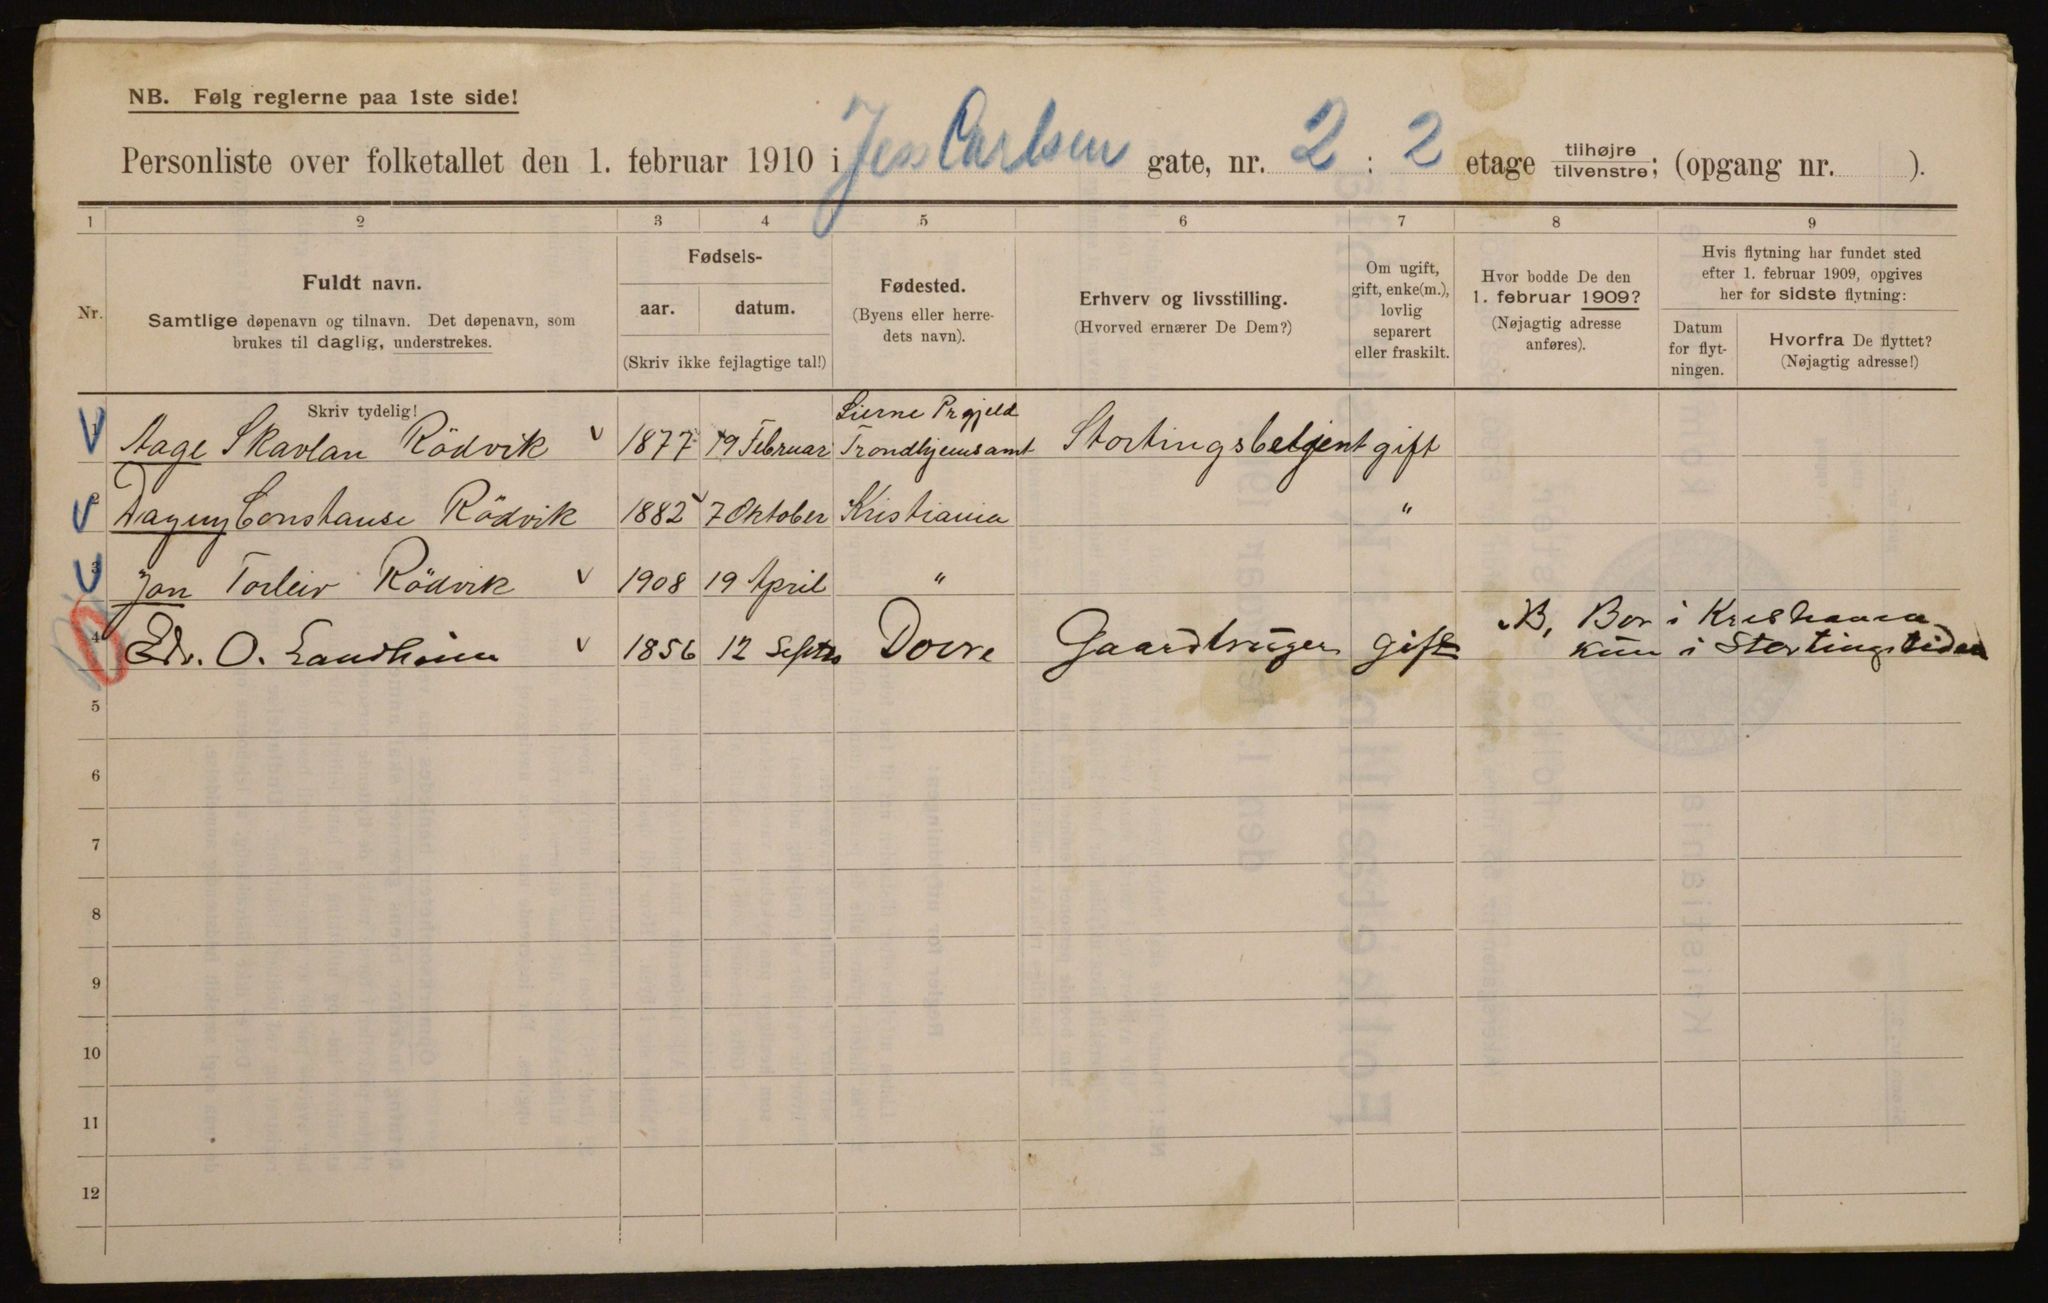 NB. Følg reglerne paa 1ste side!
Personliste over folketallet den 1. februar 1910 i Jess Carlsen gate, nr. 2 : 2 etage tilhøjre/tilvenstre; (opgang nr. ).
1 2 3 4 5 6 7 8 9
Nr.
Fuldt navn.
Samtlige døpenavn og tilnavn. Det døpenavn, som
brukes til daglig, understrekes.
Fødsels-
aar. datum.
(Skriv ikke fejlagtige tal!)
Fødested.
(Byens eller herre-
dets navn).
Erhverv og livsstilling.
(Hvorved ernærer De Dem?)
Om ugift,
gift, enke(m.),
lovlig
separert
eller fraskilt.
Hvor bodde De den
1. februar 1909?
(Nøjagtig adresse
anføres).
Hvis flytning har fundet sted
efter 1. februar 1909, opgives
her for sidste flytning:
Datum
for flyt-
ningen.
Hvorfra De flyttet?
(Nøjagtig adresse!)
Skriv tydelig!
Lierne Prgjeld
Aage Skavlan Rödvik v 1877 19 Februar Trondhjemsamt Stortingsbetjent gift
2 Dagny Constanse Rödvik 1882 7 Oktober Kristiania "
3 Jon Torleiv Rödvik v 1908 19 April "
NB, Bor i Kristiania
4 Edv. O. Landheim v 1856 12 Septbr Dovre Gaardbruger gift kun i Stortingstiden
5
6
7
8
9
10
11
12